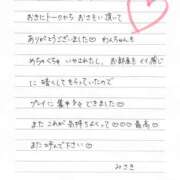 おきにトークから おさそい 頂いて
ありがとうございました♡ わんちゃんも
めちゃくちゃ いやされたし、お部屋も イイ感じ
に 暗くしてもらっていたので
プレイに 集中 できました♡
また これが 気持ちよくって♡♡♡ 最高♡
また 呼んで下さい♡
みさき